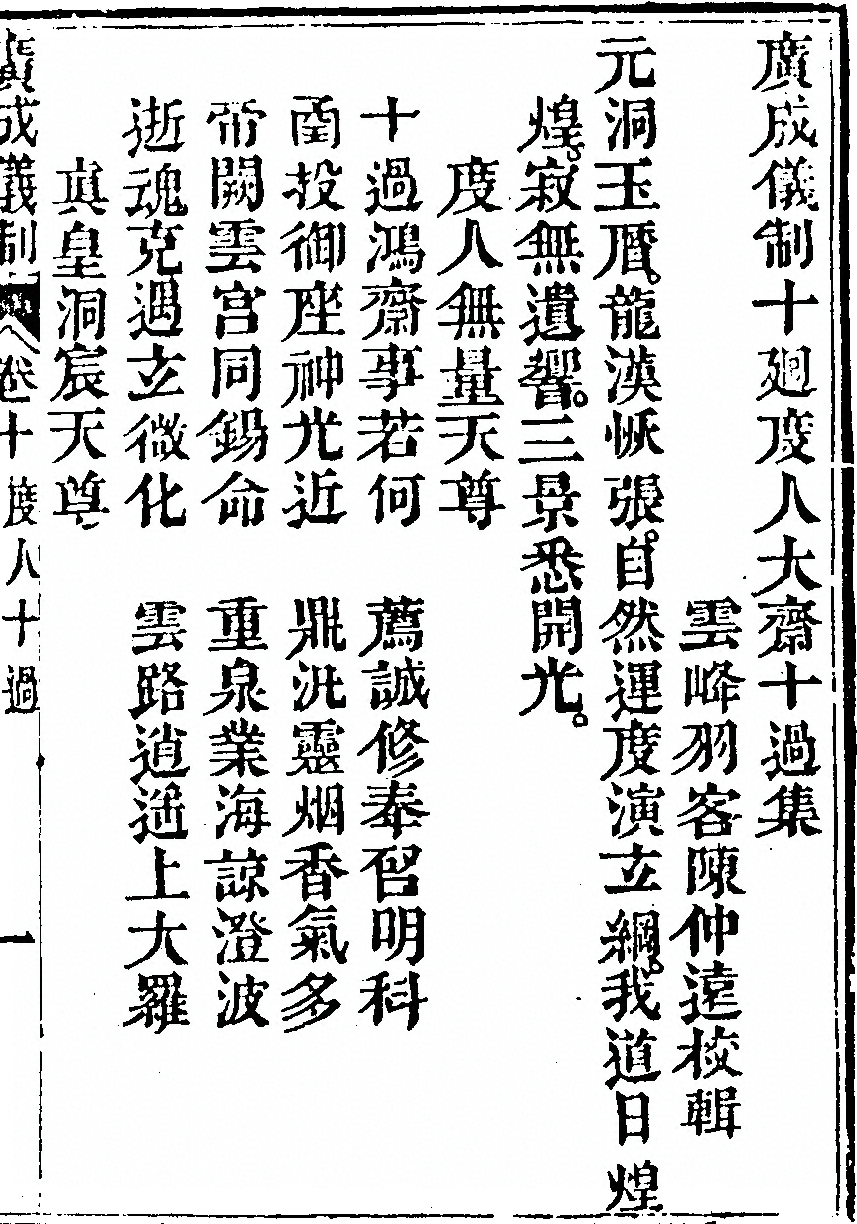 廣成儀制十廻度人大齋十過集
雲峰羽客陳仲遠校輯
元洞玉曆。龍漢恢張。自然運度演立綱。我道日煌
煌。寂無遺響。三景悉開光。
度人無量天尊
十過鴻齋事若何 薦誠修奉召明科
函投御座神光近 鼎泚靈烟香氣多
帝闕雲宮同錫命 重泉業海諒澄波
逝魂克遇立微化 雲路逍遙上大羅
真皇洞宸天尊
廣成儀制 卷十度人十過 一